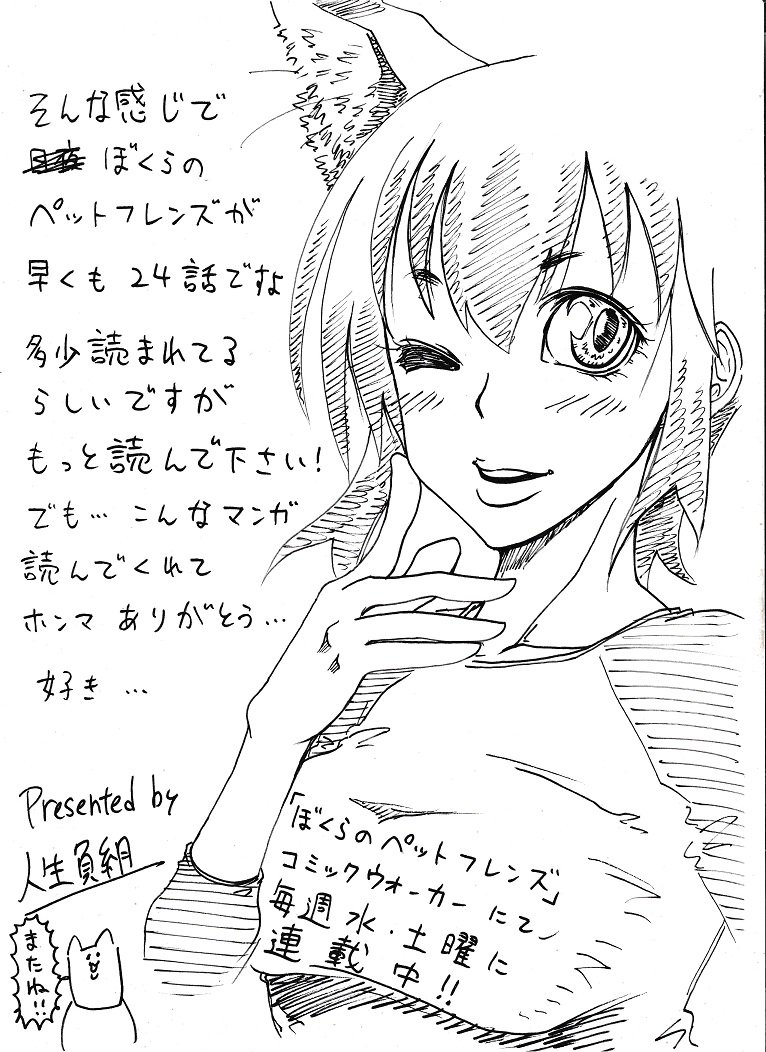 そんな感じで
ぼくらの
ペットフレンズが
早くも 24話ですよ
多少読まれてる
らしいですが
もっと読んで下さい!
でも… こんなマンガ
読んでくれて
ホンマ ありがとう…
好き …
Presented by
人生負組
またね!!
「ぼくらのペットフレンズ」
コミックウォーカーにて
毎週 水・土曜に
連載中!!